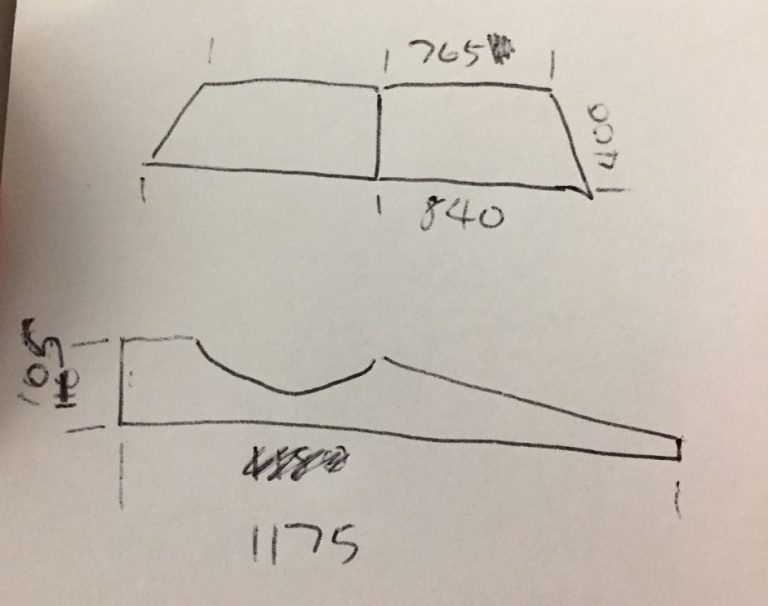 765
400
840
105
1175